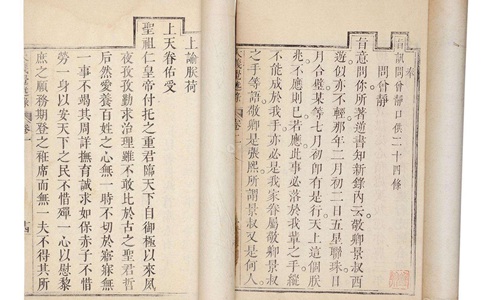 奉
旨訊問曾靜口供二十四條
問曾靜
旨意問你所著逆書知新錄內云敬卿景叔西
遊似亦不輕那年二月初二日五星聯珠日
月合璧某等七月初即有是行天上這個朕
兆不應則已若應此事必落於我輩之手縱
不能成於我手亦必是我家眷屬敬卿景叔
之手等語敬卿是張熙所謂景叔又是何人
大義覺迷錄 卷一
上諭朕荷
上天眷佑受
聖祖仁皇帝付托之重君臨天下自御極以來夙
夜孜孜勤求治理雖不敢比於古之聖君哲
后然愛養百姓之心無一時不切於寤寐無
一事不竭其周詳撫育誠求如保赤子不惜
勞一身以安天下之民不惜殫一心以慰黎
庶之願務期登之衽席而無一夫不得其所
大義覺迷錄 卷一